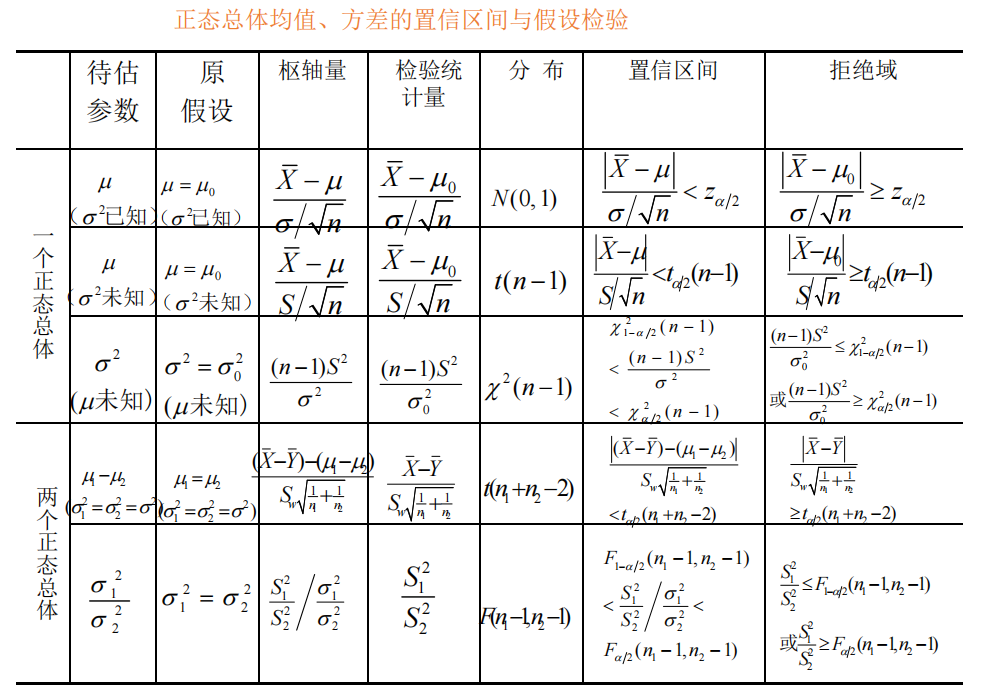 正态总体均值、方差的置信区间与假设检验
待估参数 原假设 枢轴量 检验统计量 分 布 置信区间 拒绝域
一个正态总体
μ （σ²已知） μ = μ₀ （σ²已知） (X̄ − μ)/(σ/√n) (X̄ − μ₀)/(σ/√n) N(0,1) |X̄ − μ|/(σ/√n) < z_{α/2} |X̄ − μ₀|/(σ/√n) ≥ z_{α/2}
μ （σ²未知） μ = μ₀ （σ²未知） (X̄ − μ)/(S/√n) (X̄ − μ₀)/(S/√n) t(n−1) |X̄−μ|/(S/√n) < t_{α/2}(n−1) |X̄−μ₀|/(S/√n) ≥ t_{α/2}(n−1)
σ² (μ未知) σ² = σ₀² (μ未知) (n−1)S²/σ² (n−1)S²/σ₀² χ²(n−1) χ²_{1−α/2}(n−1) < (n−1)S²/σ² < χ²_{α/2}(n−1) (n−1)S²/σ₀² ≤ χ²_{1−α/2}(n−1) 或 (n−1)S²/σ₀² ≥ χ²_{α/2}(n−1)
两个正态总体
μ₁−μ₂ (σ₁²=σ₂²=σ²) μ₁=μ₂ (σ₁²=σ₂²=σ²) ((X̄−Ȳ)−(μ₁−μ₂))/(S_w√(1/n₁+1/n₂)) (X̄−Ȳ)/(S_w√(1/n₁+1/n₂)) t(n₁+n₂−2) |(X̄−Ȳ)−(μ₁−μ₂)|/(S_w√(1/n₁+1/n₂)) <t_{α/2}(n₁+n₂−2) |X̄−Ȳ|/(S_w√(1/n₁+1/n₂)) ≥t_{α/2}(n₁+n₂−2)
σ₁²/σ₂² σ₁² = σ₂² (S₁²/S₂²)/(σ₁²/σ₂²) S₁²/S₂² F(n₁−1,n₂−1) F_{1−α/2}(n₁−1,n₂−1) < (S₁²/S₂²)/(σ₁²/σ₂²) < F_{α/2}(n₁−1,n₂−1) S₁²/S₂² ≤ F_{1−α/2}(n₁−1,n₂−1) 或 S₁²/S₂² ≥ F_{α/2}(n₁−1,n₂−1)